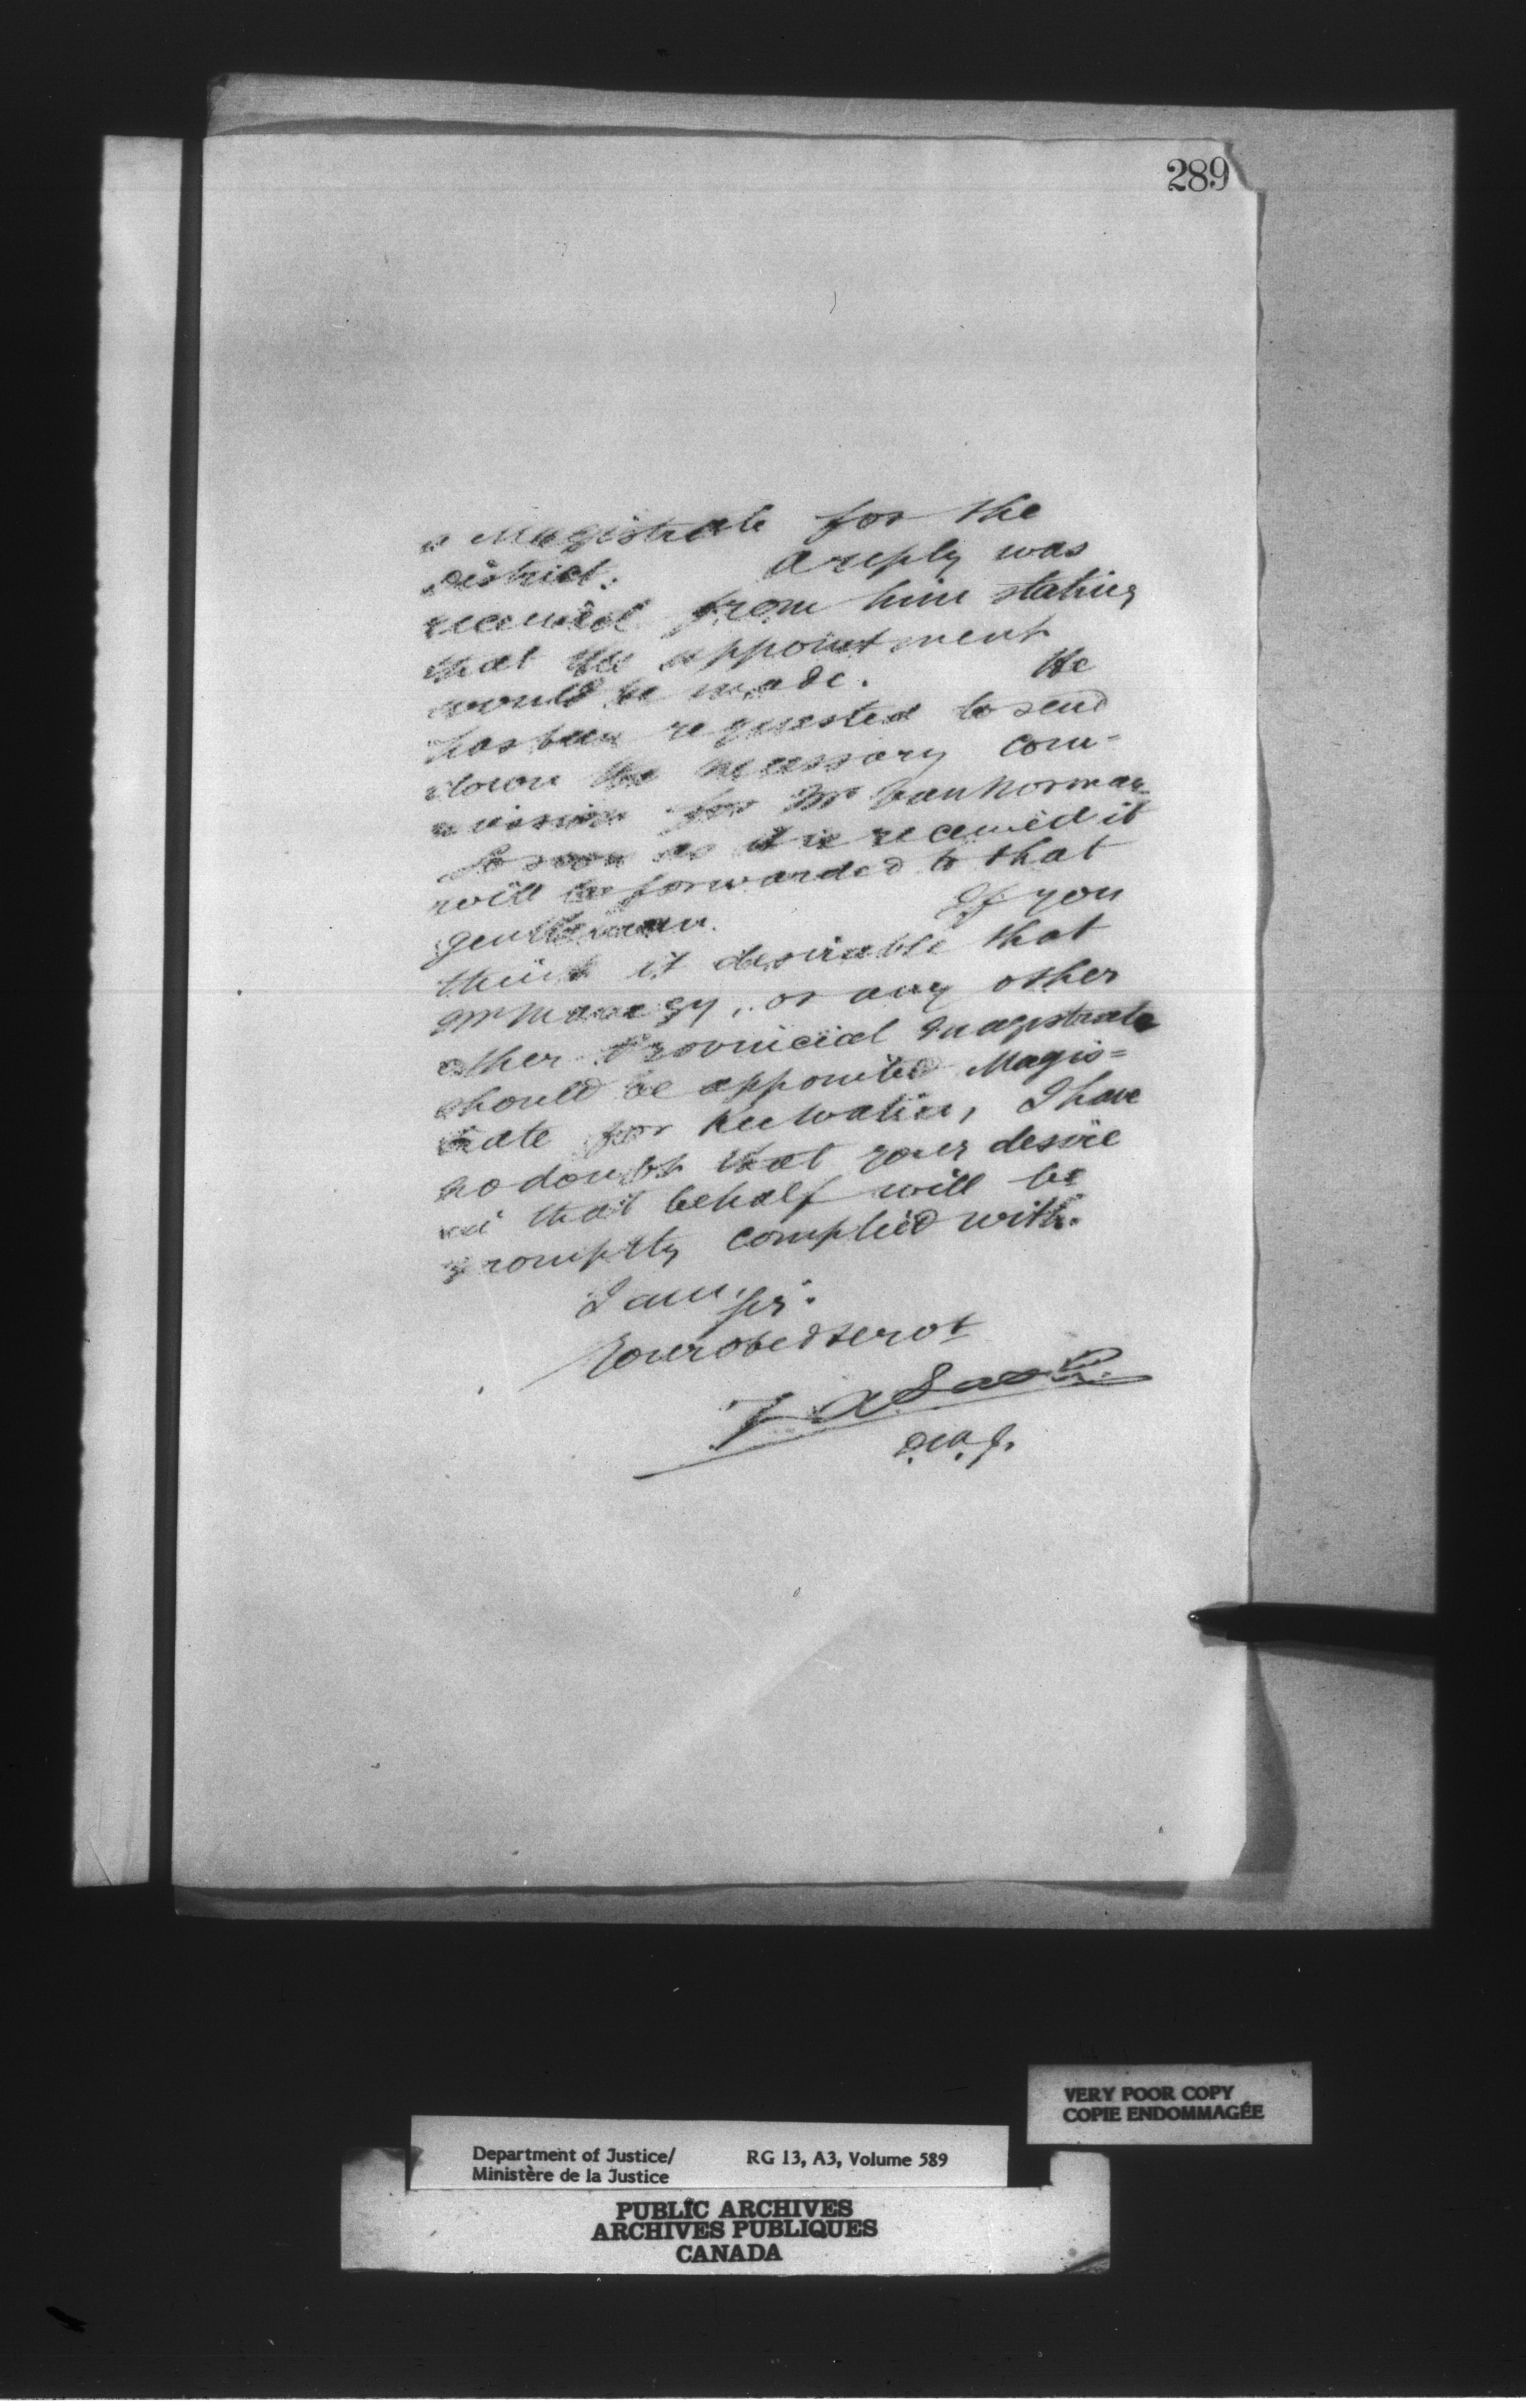 289
a Magistrate for the
District. A reply was
received from him stating
that the appointment
would be made. He
has been requested to send
down the necessary com=
mission for Mr Van Norman
So soon as it is received it
will be forwarded to that
gentleman. If you
think it desirable that
Mr, or any other
other Provincial Magistrate
should be appointed Magis=
trate for Keewatin, I have
no doubt that your desire
in that behalf will be
promptly complied with.
I am, Sir.
Your obed servt
D.M.J.
VERY POOR COPY
COPIE ENDOMMAGÉE
Department of Justice/ RG 13, A3, Volume 589
Ministère de la Justice
PUBLIC ARCHIVES
ARCHIVES PUBLIQUES
CANADA